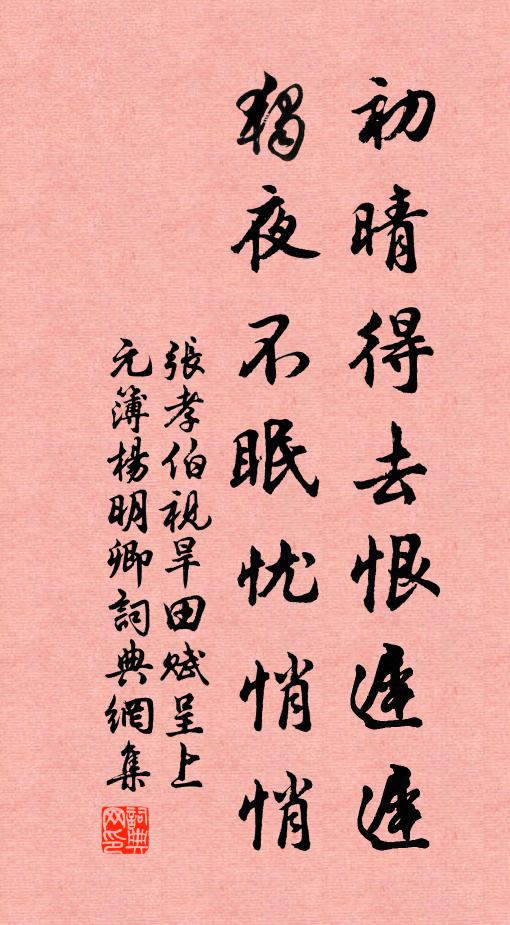 初晴得去恨遲遲
獨夜不眠忧悄悄
張孝伯視旱田賦呈上
元簿楊明卿詞典網集
詞典网印